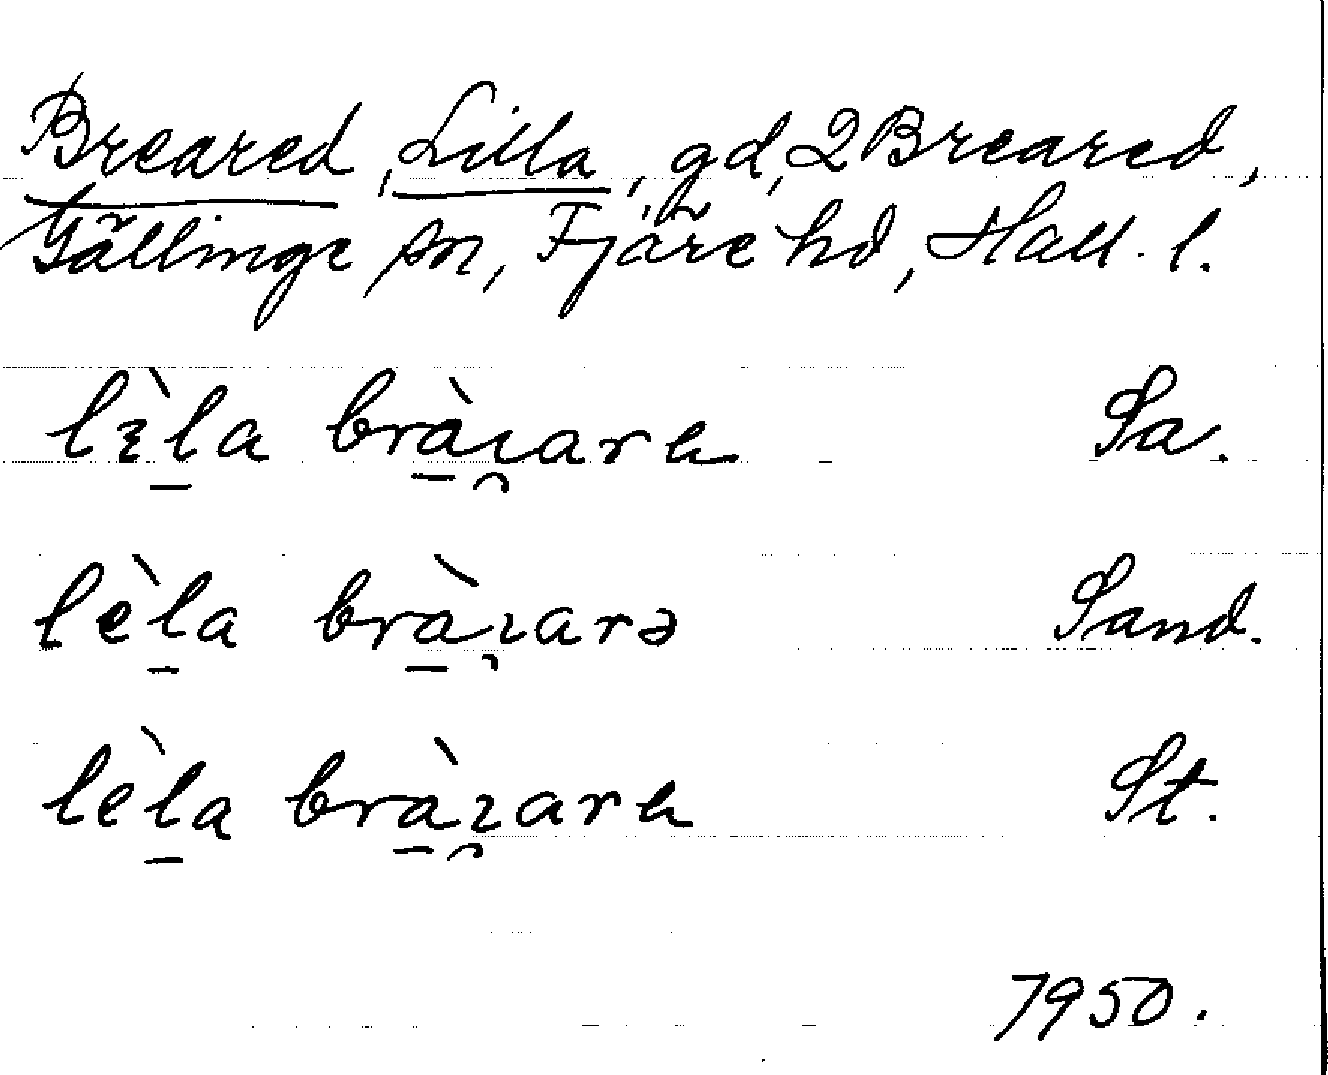 Breared, Lilla, gd, 2 Breared,
Gällinge sn, Fjäre hd, Hall. l.
lìla bràɩara Sa.
lèla bràɩarə Sand.
lèla bràɩara St.
7950.